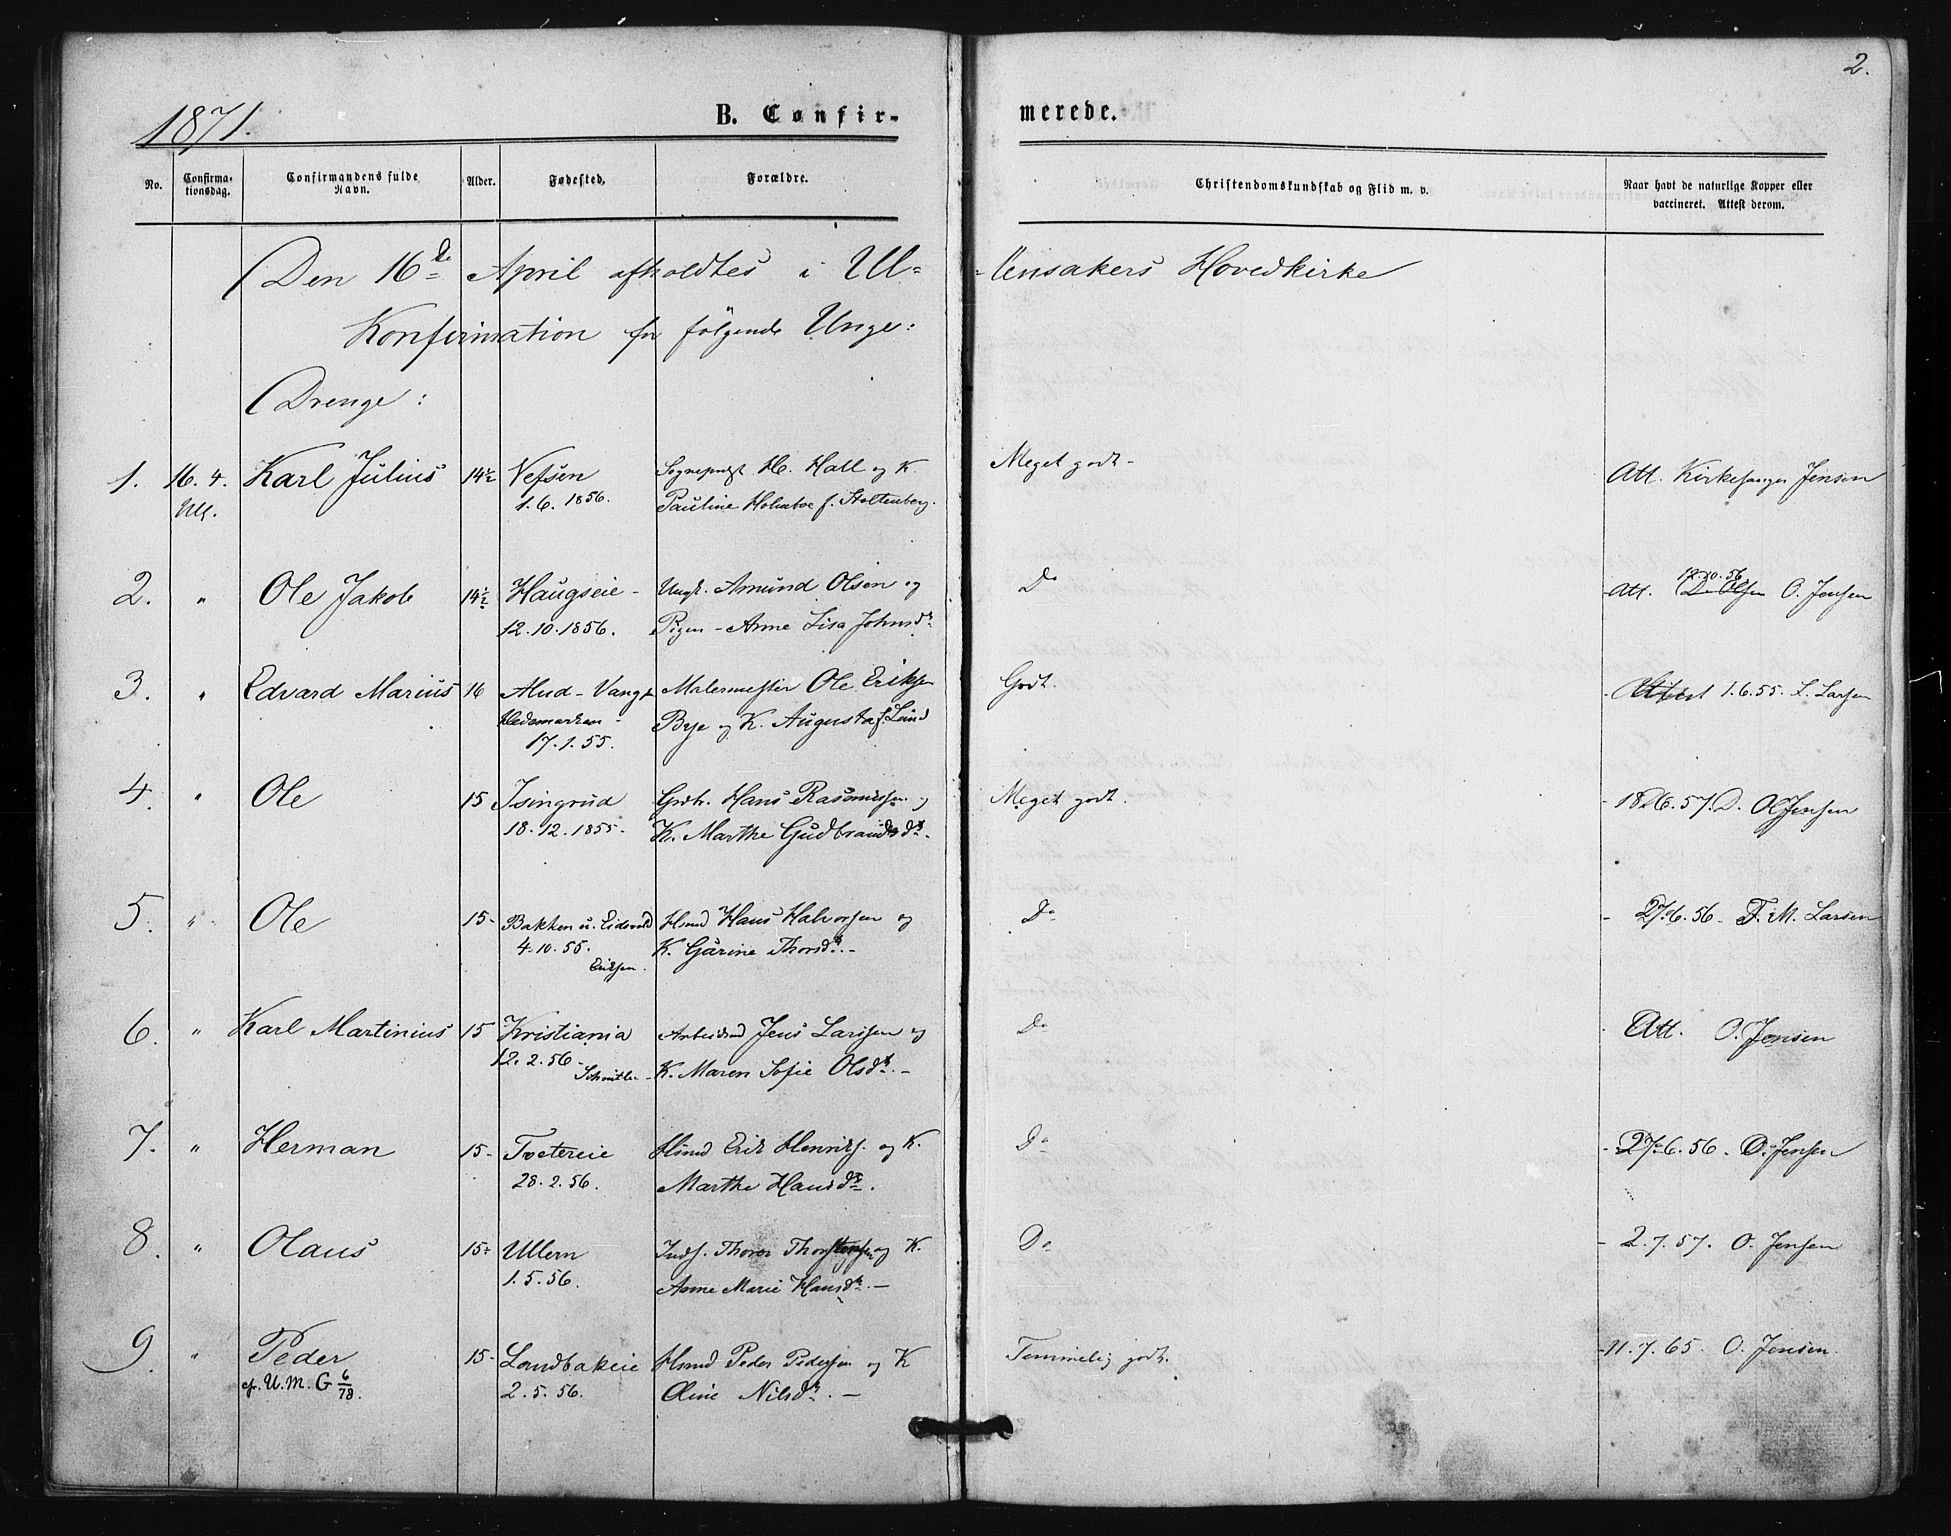 2.
1871.
B. Confirmerede.
No.
Confirmationsdag.
Confirmandens fulde Navn.
Alder.
Fødested.
Forældre.
Christendomskundskab og Flid m. v.
Naar havt de naturlige Kopper eller vaccineret. Attest derom.
Den 16de April afholdtes i Ul= =lensakers Hovedkirke
Konfirmation for følgende Unge:
Drenge:
1. 16. 4. Karl Julius 14½ Vefsen Sognepræst H. Hall og K. Meget godt - Att. Kirkesanger Jensen
Ull. 1.6. 1856. Pauline Holmboe f. Stoltenberg.
12.10.56
2. " Ole Jakob 14½ Haugseie - Ungk. Amund Olsen og Do Att. O. Jensen
12.10.1856. Pigen - Anne Lisa Johnsdr.
3. " Edvard Marius 16 Alud - Vang Malermester Ole Eriksen Godt. Attest 1.6.55. L. Larsen
Hedemarken - Bye og K. Augusta f. Lund
17.1.55.
4. " Ole 15 Isingrud Grdb. Hans Rasmussen og Meget godt. 57. Jensen
18.12.1855. K. Marthe Gudbrandsdr.
5. " Ole 15- Bakken u. Eidsvold Hsmd Hans Halvorsen og Do 27.6.56 - F. M. Larsen
4.10.55. K. Gurine Thorsdr. -
Eriksen.
6. " Karl Martinius 15 Kristiania Arbeidsmd Jens Larsen og Do Att. O. Jensen
12.2.56 - K. Maren Sofie Olsdr. -
Schnitler -
7. " Herman 15- Tveterie Hsmd Erik Henriks. og K. Do 27.6.56. O. Jensen
28.2.56. Marthe Hansdr.
8. " Olaus 15- Ullern Inds. Thorer Thorstensen og K. Do 2.7.57. O. Jensen
1.5.56. Anne Marie Hansdr. -
9. " Peder 15- Landbakeie Hsmd Peder Pedersen og K Temmelig godt. 11.7.65. O. Jensen.
cfr. U. M. G 6/78. 2.5.56. Oline Nilsdr. -